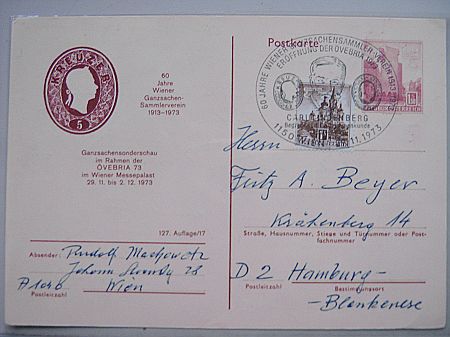 Postkarte
KREUZER
5
60
Jahre
Wiener
Ganzsachen-
Sammlerverein
1913-1973
Ganzsachensonderschau
im Rahmen der
ÖVEBRIA 73
im Wiener Messepalast
29. 11. bis 2. 12. 1973
127. Auflage/17
Absender: Rudolf
Johann
Wien
Postleitzahl
60 JAHRE WIENER GANZSACHENSAMMLER-VEREIN 1913-1973
ERÖFFNUNG DER ÖVEBRIA
CARL LINDENBERG
1150 WIEN
11.1973
Herrn
Fritz A. Beyer
Krähenberg 14
Straße, Hausnummer, Stiege und Türnummer oder Post-
fachnummer
D 2 Hamburg-
Postleitzahl
Bestimmungsort
-Blankenese